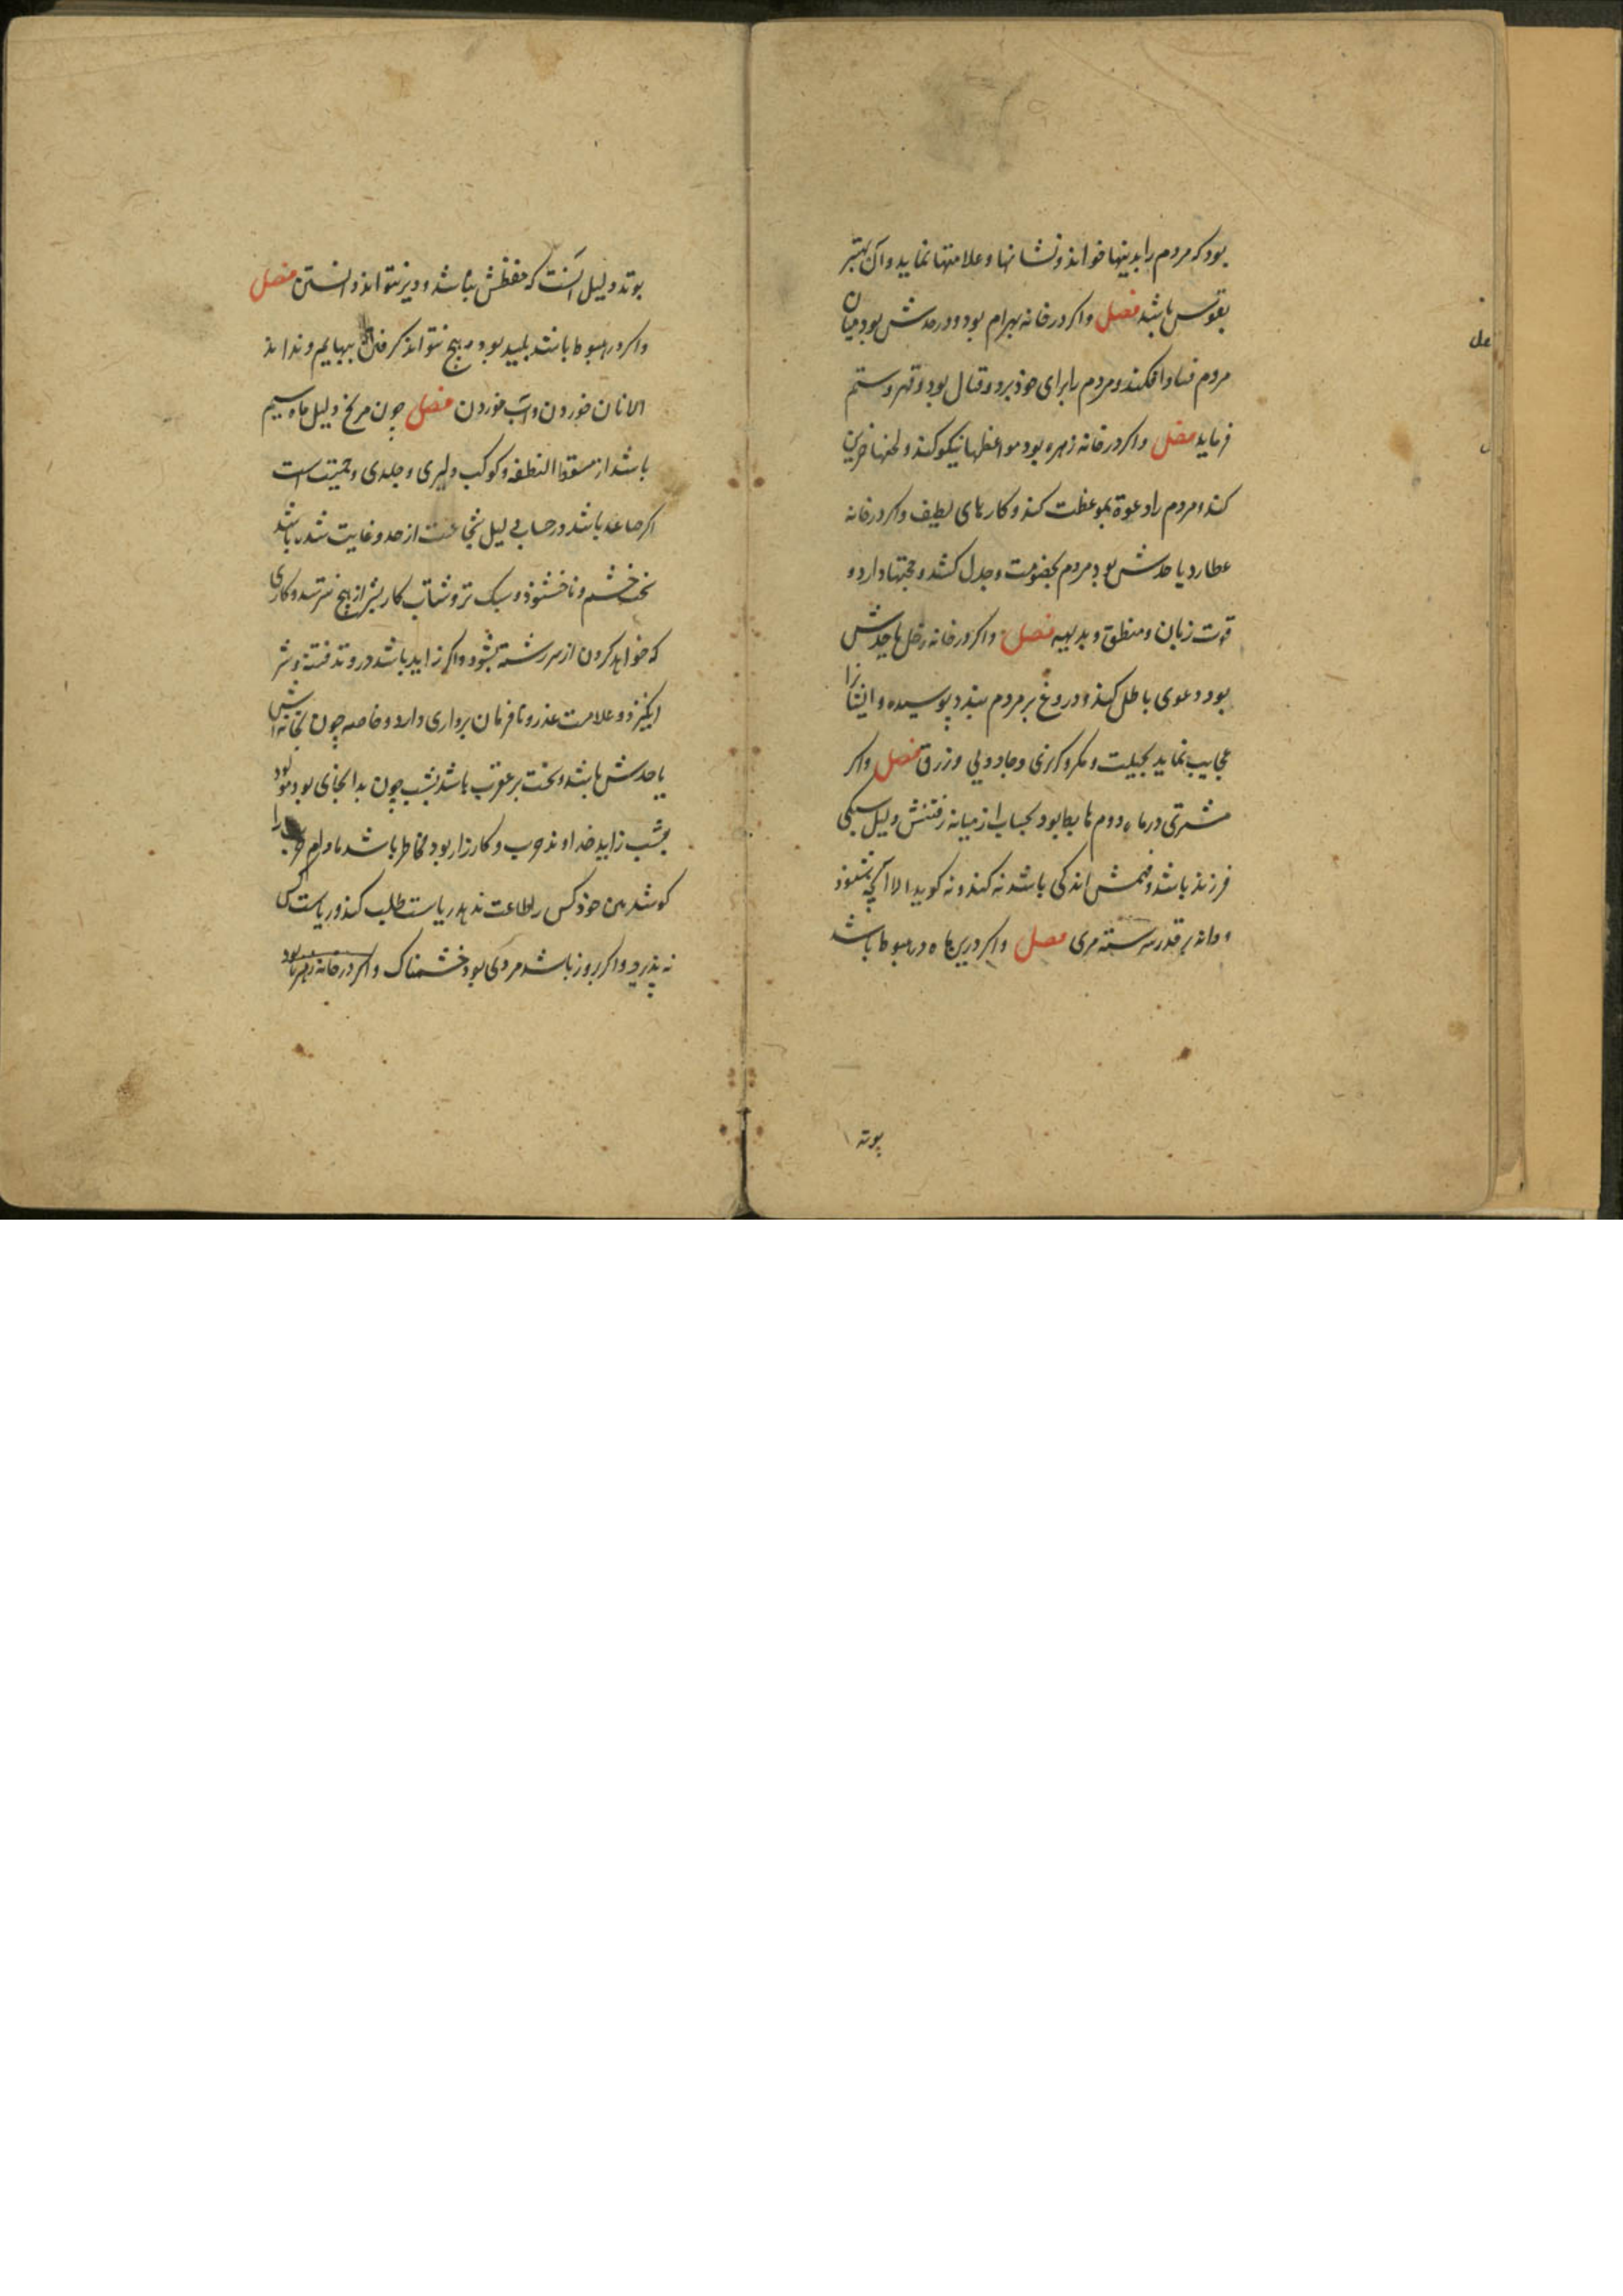 بود که مردم را بدینها خواند و نشانها و علامتها نماید و آن بهتر
بقوس باشد فصل واکر در خانه بهرام بود و در حدش بود میان
مردم فساد افکند و مردم را برای خوذ برد و قتال بود و قهر و ستم
فرماید فصل واکر در خانه زهره بود موعظها نیکو کند و لحنها حزین
کند و مردم را دعوة بموعظت کند و کارهای لطیف واکر در خانه
عطارد یا حدش بود مردم بخصومت و جدل کشد و حجتها دارد و
قوت زبان و منطق و بدیهه فصل واکر در خانه زحل یا حدش
بود دعوی باطل کند و دروغ بر مردم بندد پوسیده و ایشانرا
عجایب نماید بحیلت و مکر و کربزی و جادویی و زرق فصل واکر
مشتری در ماه دوم هابط بود بحساب از میانه رفتنش دلیل سبکی
فرزند باشد و فهمش اندکی باشد نه کند و نه کوید الا آنچه بشنود
و داند بر قدر
فصل واکر درین ماه در هبوط باشد
بوتد دلیل آنست که حفظش نباشد و دیر تواند دانستن فصل
واکر در هبوط باشد بلید بود و هیچ نتواند کرفتن
بهایم و نداند
الا نان خوردن و آب خوردن فصل چون مریخ دلیل ماه سیم
باشد از مسقط النطفه و کوکب دلیری و جلدی و حمیت است
اکر صاعد باشد در حساب دلیل شجاعت از حد و غایت شده باشد
خشم و ناخشنوذ و سبک تر و شتاب کار بشر از هیچ نترسد و کاری
که خواهد کردن از سر رشته بشود واکر زاید باشد در وتد فتنه و شر
انکیزد و علامت غدر و نافرمان برداری دارد و خاصه چون بخانه اش
یا حدش باشد و بخت بر عقرب باشد بشب چون بدانجای بود مولود
بشب زاید خداوند حرب و کارزار بود مخاطر باشد مادام حرب را
کوشد تن خوذ کس را طاعت ندهد ریاست طلب کند و ریاست کس
نه پذیرد واکر بروز باشد مردی بود خشمناک واکر در خانه زهره بود
بوتد